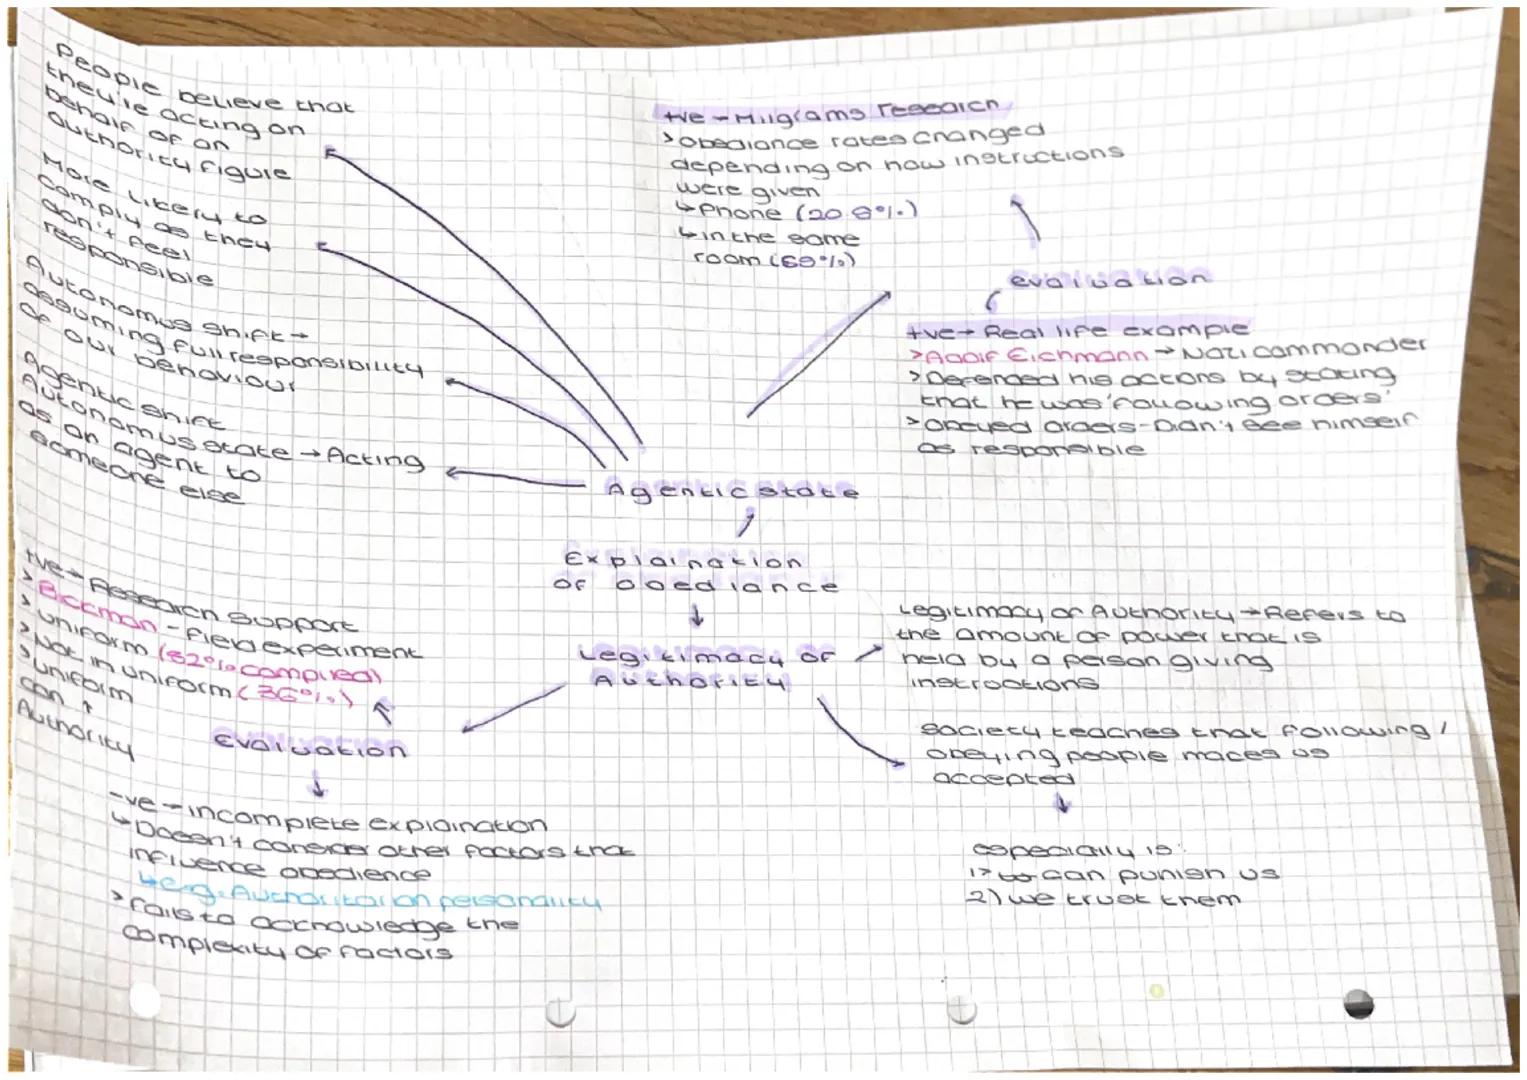 People believe that
they're acting on
behalf of an
authority figure
More likely to
comply as they
don't feel
responsible
Autonomus shift →
assuming full responsibility
of our behaviour
Agentic shift
Autonomus state → Acting
as an agent to
someone else
+ve → Milgrams research
> obediance rates changed
depending on how instructions
were given
↳ Phone (20.5%)
↳ in the same
room (65%)
evaluation
+ve → Real life example
> Adolf Eichmann → Nazi commander
> Defended his actions by stating
that he was 'following orders'
> obeyed orders - Didn't see himself
as responsible
Agentic state
Explaination
of obediance
Legitimacy of
Authority
Legitimacy of Authority → Refers to
the amount of power that is
held by a person giving
instructions
society teaches that following /
obeying people makes us
accepted
especially is:
1> can punish us
2) we trust them
+ve → Research support
> Bickman - field experiment
> uniform (82% complied)
> Not in uniform (36%)
> uniform
can ↑
Authority
Evaluation
-ve → incomplete explaination
↳ Doesn't consider other factors that
influence obedience
↳ e.g. Authoritarian personality
> fails to acknowledge the
complexity of factors